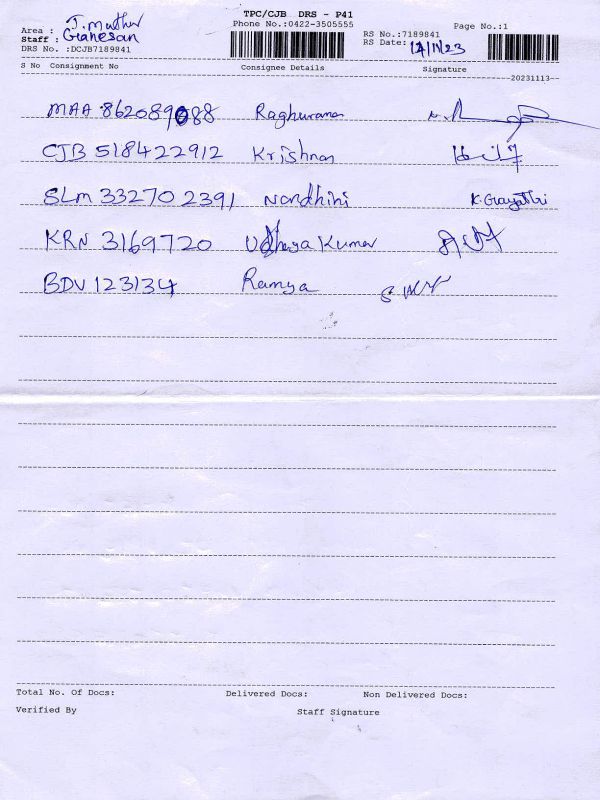 TPC/CJB DRS - P41
Phone No.:0422-3505555
Page No.:1
Area : J. Muthu
Staff : Ganesan
DRS No. :DCJB7189841
RS No.:7189841
RS Date: 14/11/23
S No Consignment No Consignee Details Signature
20231113
MAA 862089088 Raghuraman
CJB 518422912 Krishnan
SLM 332702391 Nandhini K. Gayathri
KRN 3169720 Udhaya Kumar
BDV 123134 Ramya
Total No. Of Docs: Delivered Docs: Non Delivered Docs:
Verified By Staff Signature